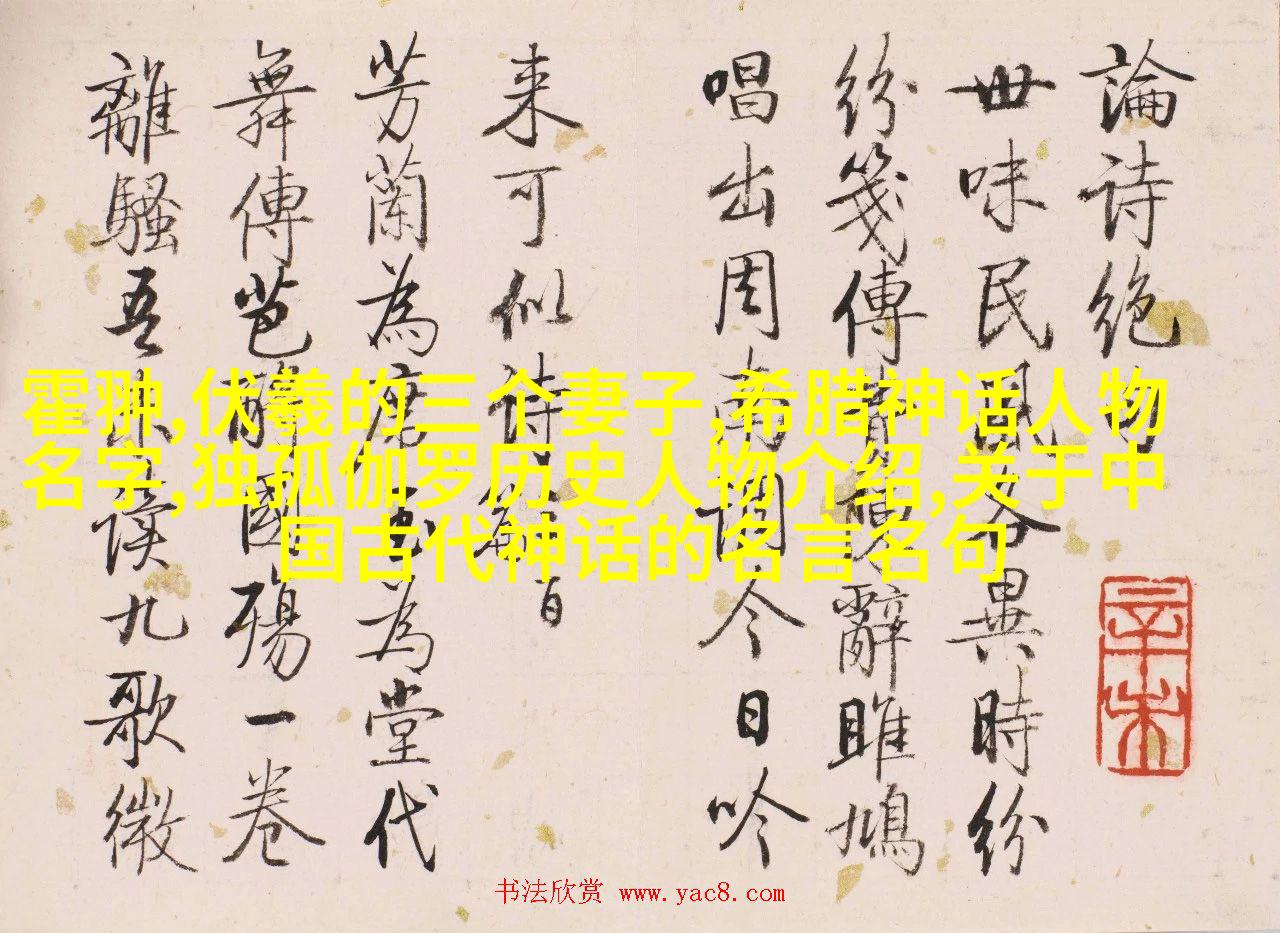 論诗絕
世味民風各異時紛
紛箋傳費辭雎鳩
唱出周南今日吟
来可似诗
芳蘭為席為堂代
舞傳芭國殤一卷
離騷吾讀九歌微
霍翀,伏羲的三个妻子,希腊神话人物
名字,独孤伽罗历史人物介绍,关于中
国古代神话的名言名句
辛未
书法欣赏 www.yac8.com